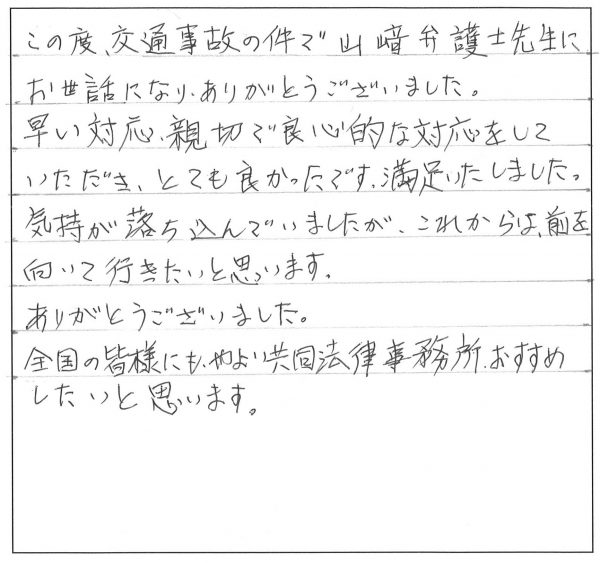 この度、交通事故の件で山﨑弁護士先生に
お世話になり、ありがとうございました。
早い対応、親切で良心的な対応をして
いただき、とても良かったです、満足いたしました。
気持が落ち込んでいましたが、これからは、前を
向いて行きたいと思います。
ありがとうございました。
全国の皆様にも、やよい共同法律事務所、おすすめ
したいと思います。